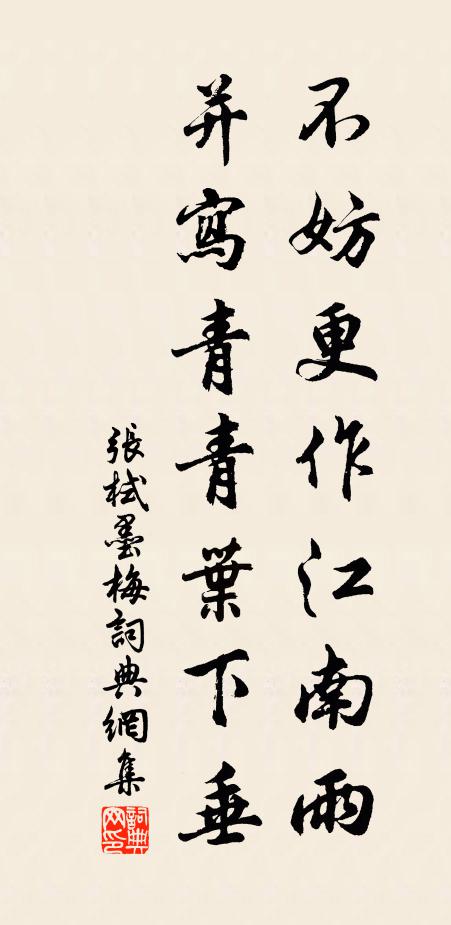 不妨更作江南雨
并寫青青葉下垂
張栻墨梅詞典網集
詞典網印